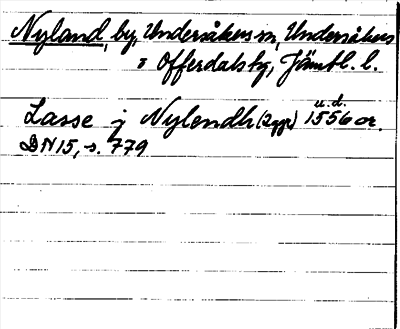 Nyland, by, Undersåkers sn, Undersåkers
o Offerdals tg, Jämtl. l.
u. d.
Lasse j Nylendh (2 ggr) 1556 or.
DN 15, s. 779